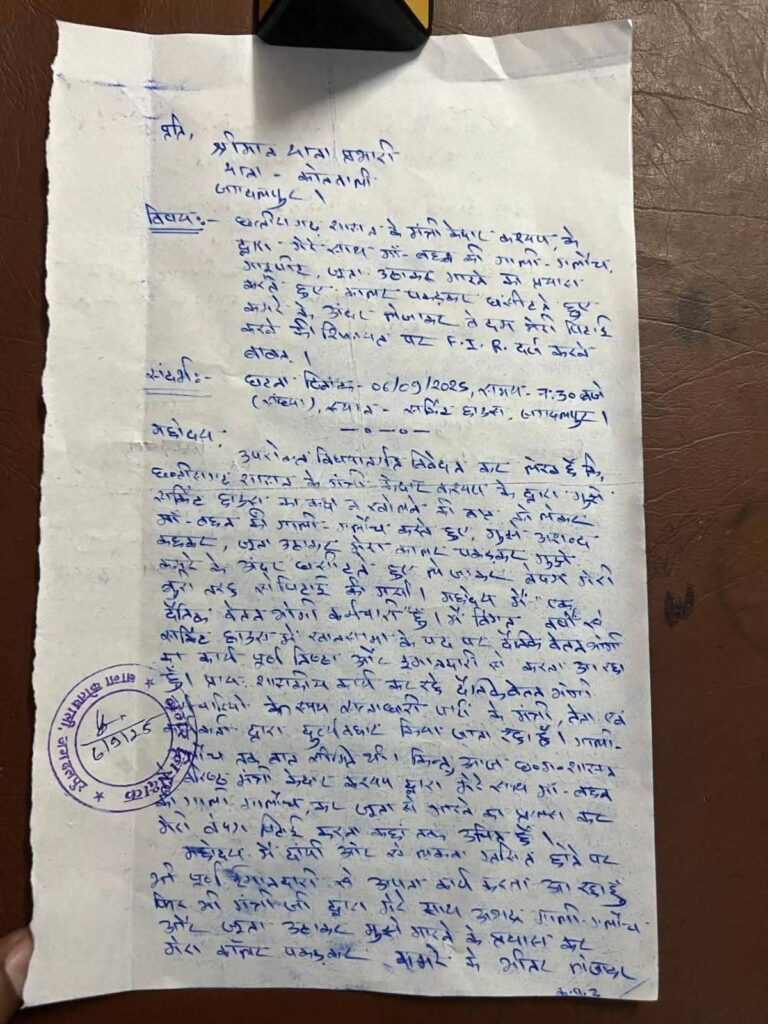 प्रति,
श्रीमान थाना प्रभारी
थाना - कोतवाली
जगदलपुर।
विषय:- छत्तीसगढ़ शासन के मंत्री केदार कश्यप के
द्वारा मेरे साथ माँ-बहन की गाली-गलौच,
मारपीट, जूता उठाकर मारने का प्रयास
करते हुए कालर पकड़कर घसीटते हुए
कमरे के अंदर लेजाकर बेदम मेरी पिटाई
करने की शिकायत पर F.I.R. दर्ज करने
बाबत।
संदर्भ:- घटना दिनांक - 06/09/2025, समय - 7:30 बजे
(संध्या), स्थान - सर्किट हाउस, जगदलपुर।
महोदय,
उपरोक्त विषयांतर्गत निवेदन कर लेख है कि,
छत्तीसगढ़ शासन के मंत्री केदार कश्यप के द्वारा मुझे
सर्किट हाउस का कमरा न खोलने की बात को लेकर
माँ-बहन की गाली-गलौच करते हुए, मुझे अपशब्द
कहकर, जूता उठाकर मेरा कालर पकड़कर मुझे
कमरे के अंदर घसीटते हुए ले जाकर बेदम मेरी
बुरी तरह से पिटाई की गयी। महोदय मैं एक
दैनिक वेतन भोगी कर्मचारी हूँ। मैं विगत वर्षों से
सर्किट हाउस में खानसामा के पद पर दैनिक वेतन भोगी
का कार्य पूर्ण निष्ठा और ईमानदारी से करता आ रहा
हूँ। प्रायः शासकीय कार्य कर रहे दैनिक वेतन भोगी
के साथ सत्ताधारी पार्टी के मंत्री, नेता एवं
द्वारा दुर्व्यवहार किया जाता रहा है। गाली-
तक बात सीमित थी। किन्तु आज छ०ग० शासन
मंत्री केदार कश्यप द्वारा मेरे साथ माँ-बहन
की गाली गलौच, कर जूता से मारने का प्रयास कर
मेरी बेदम पिटाई करना कहां तक उचित है।
महोदय मैं बीपी और से ग्रसित होने पर
भी पूर्ण ईमानदारी से अपना कार्य करता आ रहा हूँ
फिर भी मंत्री जी द्वारा मेरे साथ अभद्र गाली-गलौच
और जूता उठाकर मुझे मारने के प्रयास कर
मेरा कॉलर पकड़कर कमरे के भीतर लेजाकर
क.पृ.2
थाना कोतवाली, जग
6/9/25